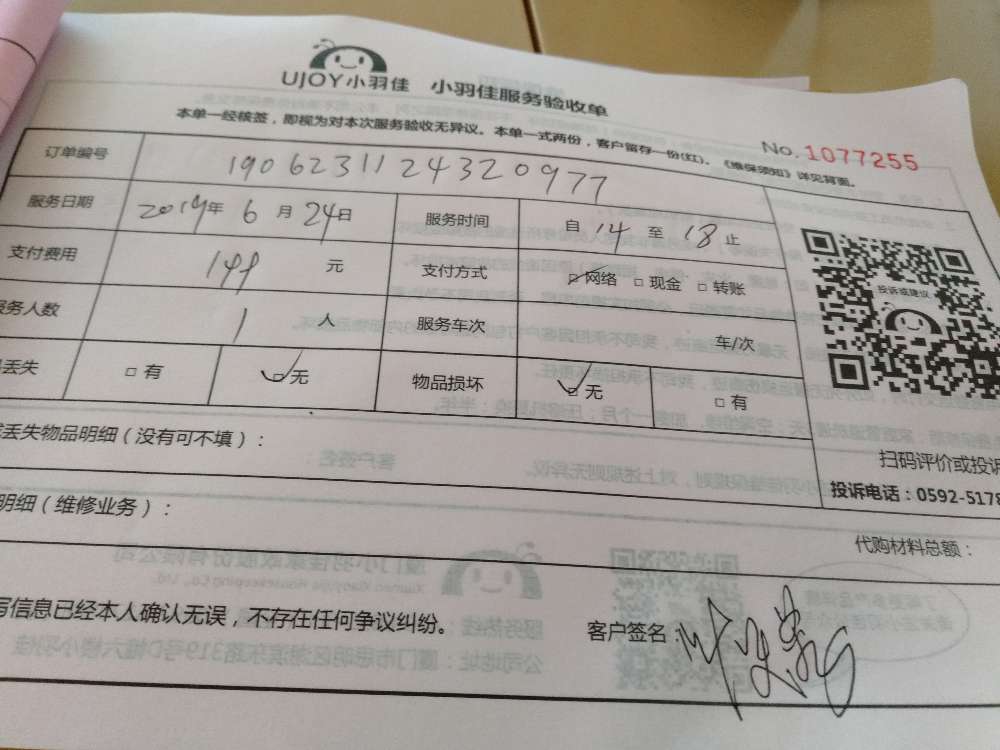 UJOY小羽佳 小羽佳服务验收单
本单一经核签，即视为对本次服务验收无异议。本单一式两份，客户留存一份(红)。《维保须知》详见背面。
No.1077255
订单编号 1906231124320977
服务日期 2019年 6 月 24日 服务时间 自 14 至 18 止
支付费用 元 支付方式 网络 现金 转账
服务人数 1 人 服务车次 车/次
丢失 有 无 物品损坏 无 有
投诉或建议
丢失物品明细（没有可不填）：
扫码评价或投诉
投诉电话：0592-5178
明细（维修业务）：
代购材料总额：
写信息已经本人确认无误，不存在任何争议纠纷。
客户签名：